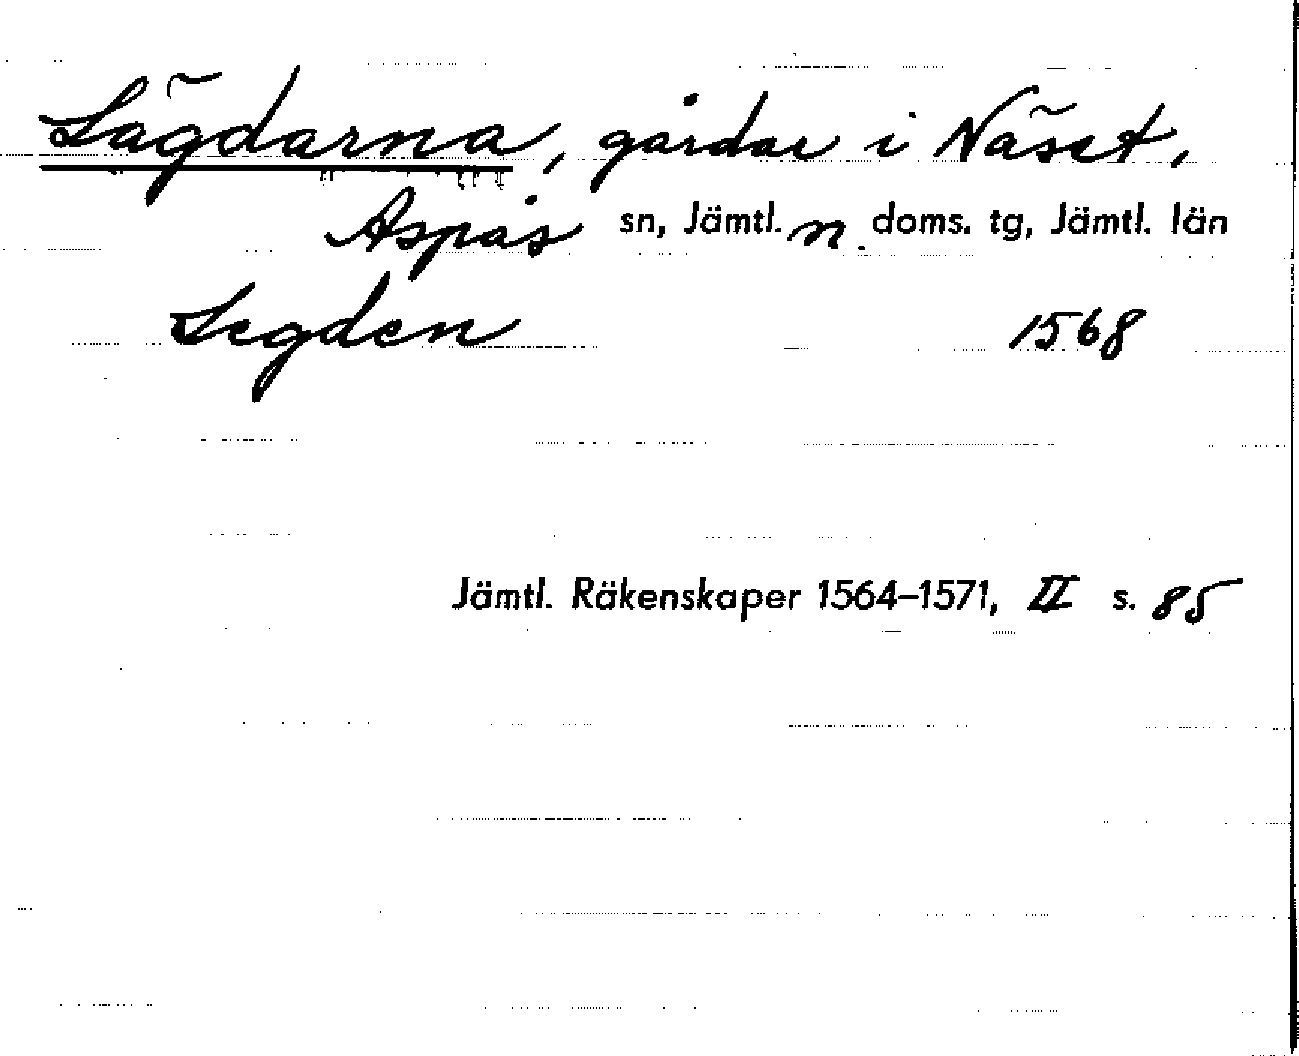 Lägdarna, gårdar i Näset,
Aspås sn, Jämtl. n doms. tg, Jämtl. län
Legden 1568
Jämtl. Räkenskaper 1564–1571, II s. 85